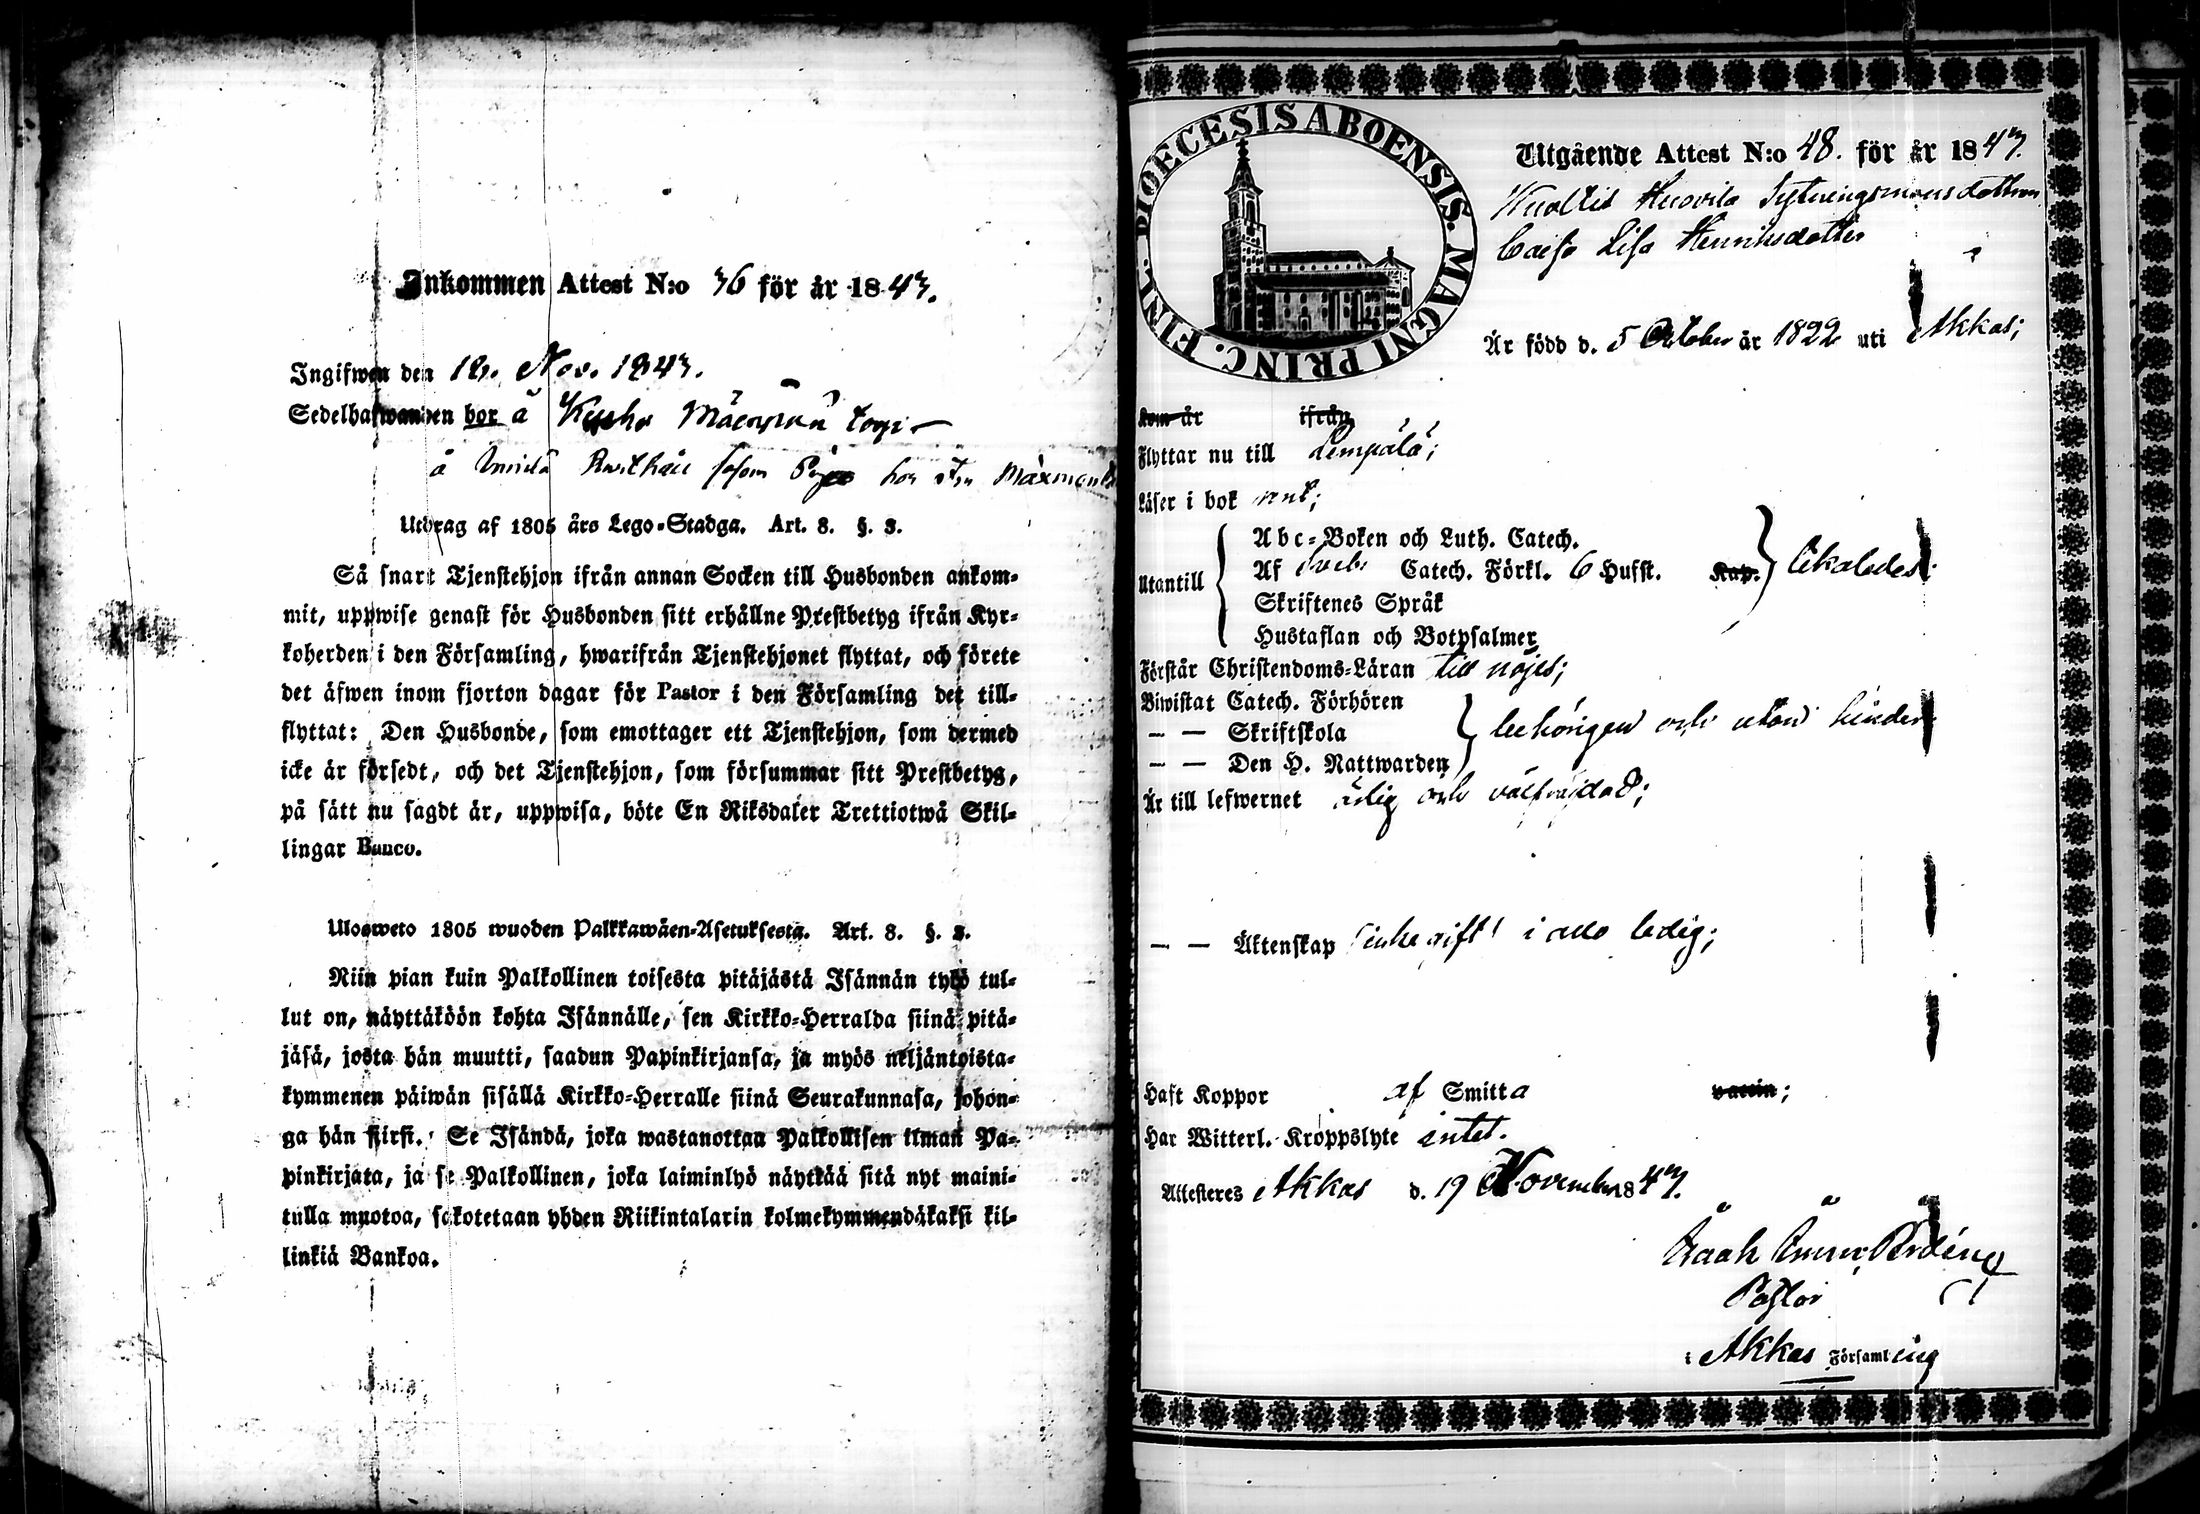 Inkommen Attest N:o 36 för år 1843.
Ingifwen den 18. Nov. 1843.
Sedelhafwanden bor å
å såsom hos
Utdrag af 1805 års Lego-Stadga. Art. 8. §. 3.
Så snart Tjenstehjon ifrån annan Socken till Husbonden ankom-
mit, uppwise genast för Husbonden sitt erhållne Prestbetyg ifrån Kyr-
koherden i den Församling, hwarifrån Tjenstehjonet flyttat, och förete
det äfwen inom fjorton dagar för Pastor i den Församling det till-
flyttat: Den Husbonde, som emottager ett Tjenstehjon, som dermed
icke är försedt, och det Tjenstehjon, som försummar sitt Prestbetyg,
på sätt nu sagdt är, uppwisa, böte En Riksdaler Trettiotwå Skil-
lingar Banco.
Ulosweto 1805 wuoden Palkkawäen-Asetuksesta. Art. 8. §. 3.
Niin pian kuin Palkollinen toisesta pitäjästä Isännän tykö tul-
lut on, näyttäköön kohta Isännälle, sen Kirkko-Herralda siinä pitä-
jäsä, josta hän muutti, saadun Papinkirjansa, ja myös neljäntoista-
kymmenen päiwän sisällä Kirkko-Herralle siinä Seurakunnasa, johon-
ga hän siirsi. Se Isändä, joka wastanottaa Palkollisen ilman Pa-
pinkirjata, ja se Palkollinen, joka laiminlyö näyttää sitä nyt maini-
tulla muotoa, sakotetaan yhden Riikintalarin kolmekymmendäkaksi kil-
linkiä Bankoa.
DIOECESIS ABOENSIS. MAGNI PRINC. FINL.
Utgående Attest N:o 48. för år 1843.
Huovila Sytningsmansdottren
Caisa Lisa Henriksdotter
Är född d. 5 October år 1822 uti Akkas;
Kom år ifrån
Flyttar nu till Lempälä;
Läser i bok rent;
Utantill
Abc-Boken och Luth. Catech.
Af Sveb. Catech. Förkl. 6 Hufst. Kap.
Skriftenes Språk
Hustaflan och Botpsalmer
Förstår Christendoms-Läran till nöjes;
Biwistat Catech. Förhören
— — Skriftskola behörigen och utan hinder
— — Den H. Nattwarden
Är till lefwernet ärlig och välfrejdad;
— — Äktenskap icke gift i allo ledig;
Haft Koppor af Smitta vaccin;
Har Witterl. Kroppslyte intet.
Attesteres Akkas d. 19 November 1843.
Pastor
i Akkas Församling